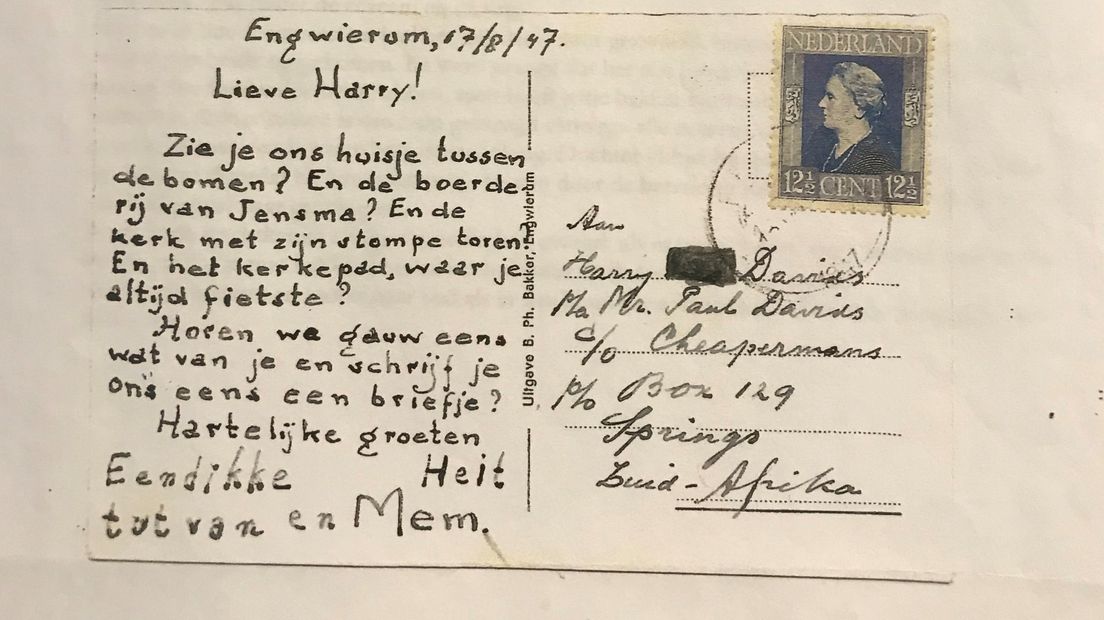 Engwierum, 17/8/47.
Lieve Harry!
Zie je ons huisje tussen
de bomen? En de boerde
rij van Jensma? En de
kerk met zijn stompe toren?
En het kerkepad, waar je
altijd fietste?
Horen we gauw eens
wat van je en schrijf je
ons eens een briefje?
Hartelijke groeten
Een dikke Heit
tut van en Mem.
Uitgave B. Ph. Bakker, Engwierum
NEDERLAND
12½ CENT 12½
Aan
Harry Davids
p/a Mr. Paul Davids
c/o Cheapermans
p/o Box 129
Springs
Zuid-Afrika